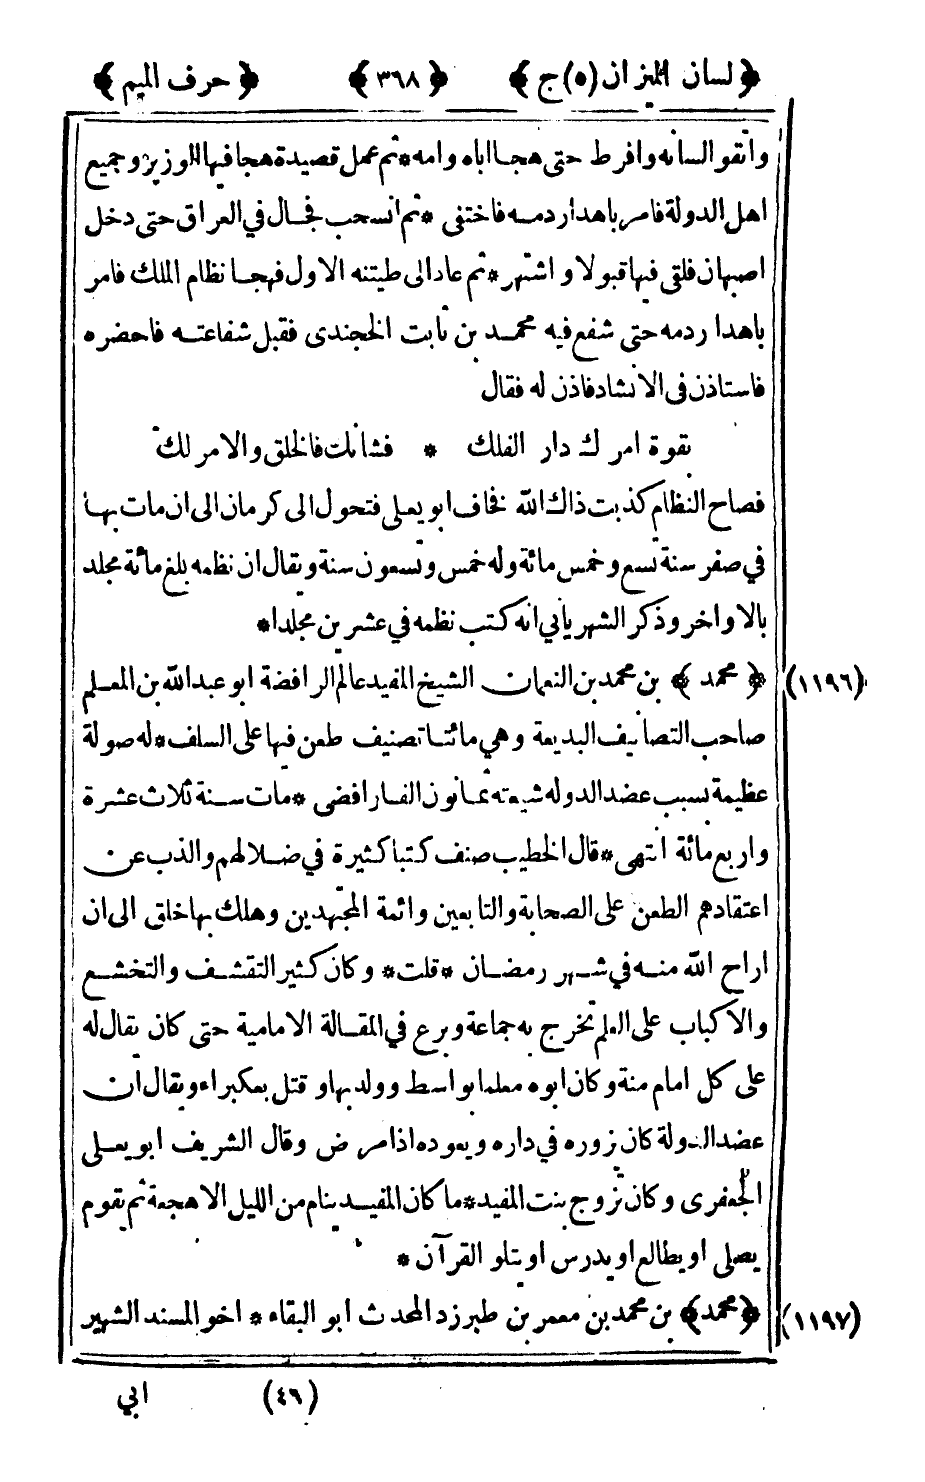 ﴿ لسان الميزان (٥) ج ﴾ ﴿ ٣٦٨ ﴾ ﴿ حرف الميم ﴾
واتقوا لسانه وافرط حتى هجا اباه وامه * ثم عمل قصيدة هجا فيها الوزير وجميع
اهل الدولة فامر باهدار دمه فاختفى * ثم انسحب فجال في العراق حتى دخل
اصبهان فلقى فيها قبولا و اشتهر * ثم عاد الى طيتنه الاول فهجا نظام الملك فامر
باهدا ردمه حتى شفع فيه محمد بن ثابت الخجندى فقبل شفاعته فاحضره
فاستاذن فى الانشاد فاذن له فقال
بقوة امرك دار الفلك * فشانك فالخلق والامر لك
فصاح النظام كذبت ذاك الله فخاف ابو يعلى فتحول الى كرمان الى ان مات بها
في صفر سنة تسع وخمس مائة وله خمس وتسعون سنة ويقال ان نظمه بلغ مائة مجلد
بالاواخر وذكر الشهرياني انه كتب نظمه في عشرين مجلدا *
(١١٩٦) ﴿ محمد ﴾ بن محمد بن النعمان الشيخ المفيد عالم الرافضة ابو عبد الله بن المعلم
صاحب التصانيف البديعة وهي مائتا تصنيف طعن فيها على السلف * له صولة
عظيمة بسبب عضد الدوله شيعته ثمانون الف رافضى * مات سنة ثلاث عشرة
واربع مائة انتهى * قال الخطيب صنف كتبا كثيرة في ضلالهم والذب عن
اعتقادهم الطعن على الصحابة والتابعين وائمة المجتهدين وهلك بها خلق الى ان
اراح الله منه في شهر رمضان * قلت * وكان كثير التقشف والتخشع
والاكباب على العلم تخرج به جماعة وبرع في المقالة الامامية حتى كان يقال له
على كل امام منة وكان ابوه معلما بواسط وولد بها وقتل بعكبراء ويقال ان
عضد الدولة كان يزوره في داره ويعوده اذا مرض وقال الشريف ابو يعلى
الجعفرى وكان تزوج بنت المفيد * ما كان المفيد ينام من الليل الا هجعة ثم يقوم
يصلى او يطالع او يدرس او يتلو القرآن *
(١١٩٧) ﴿ محمد ﴾ بن محمد بن معمر بن طبرزد المحدث ابو البقاء * اخو المسند الشهير
(٤٦) ابي